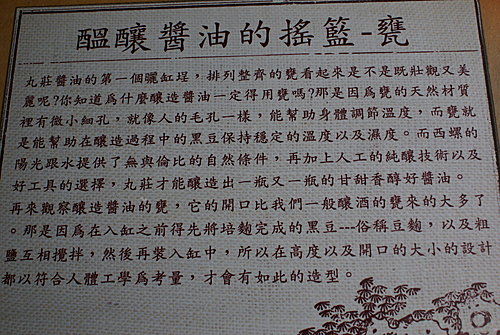 醞釀醬油的搖籃-甕
丸莊醬油的第一個曬缸埕，排列整齊的甕看起來是不是既壯觀又美
麗呢?你知道為什麼釀造醬油一定得用甕嗎?那是因為甕的天然材質
裡有微小細孔，就像人的毛孔一樣，能幫助身體調節溫度，而甕就
是能幫助在釀造過程中的黑豆保持穩定的溫度以及濕度。而西螺的
陽光跟水提供了無與倫比的自然條件，再加上人工的純釀技術以及
好工具的選擇，丸莊才能釀造出一瓶又一瓶的甘甜香醇好醬油。
再來觀察釀造醬油的甕，它的開口比我們一般釀酒的甕來的大多了
。那是因為在入缸之前得先將培麴完成的黑豆---俗稱豆麴，以及粗
鹽互相攪拌，然後再裝入缸中，所以在高度以及開口的大小的設計
都以符合人體工學為考量，才會有如此的造型。